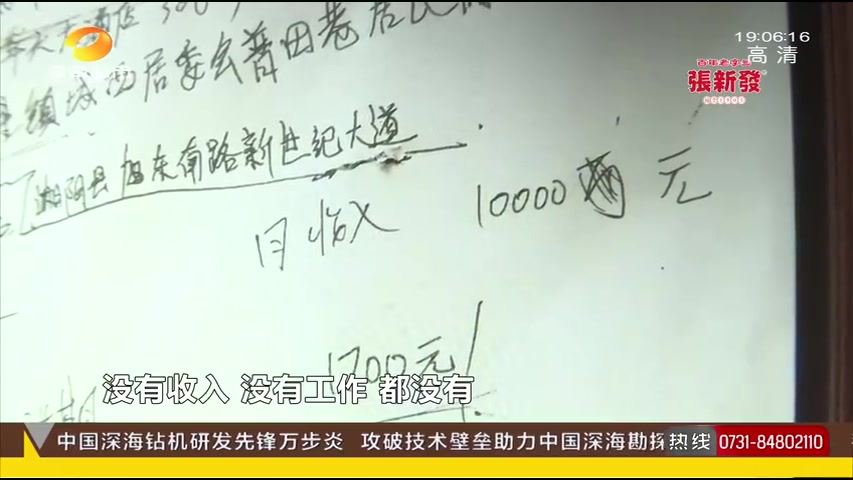 大酒店 500
19:06:16
高清
張新發
镇城西居委会普田巷居民
湘阴县旭东南路新世纪大道
月收入 10000 元
1700元/
没有收入 没有工作 都没有
中国深海钻机研发先锋万步炎 攻破技术壁垒助力中国深海勘探 热线 0731-84802110